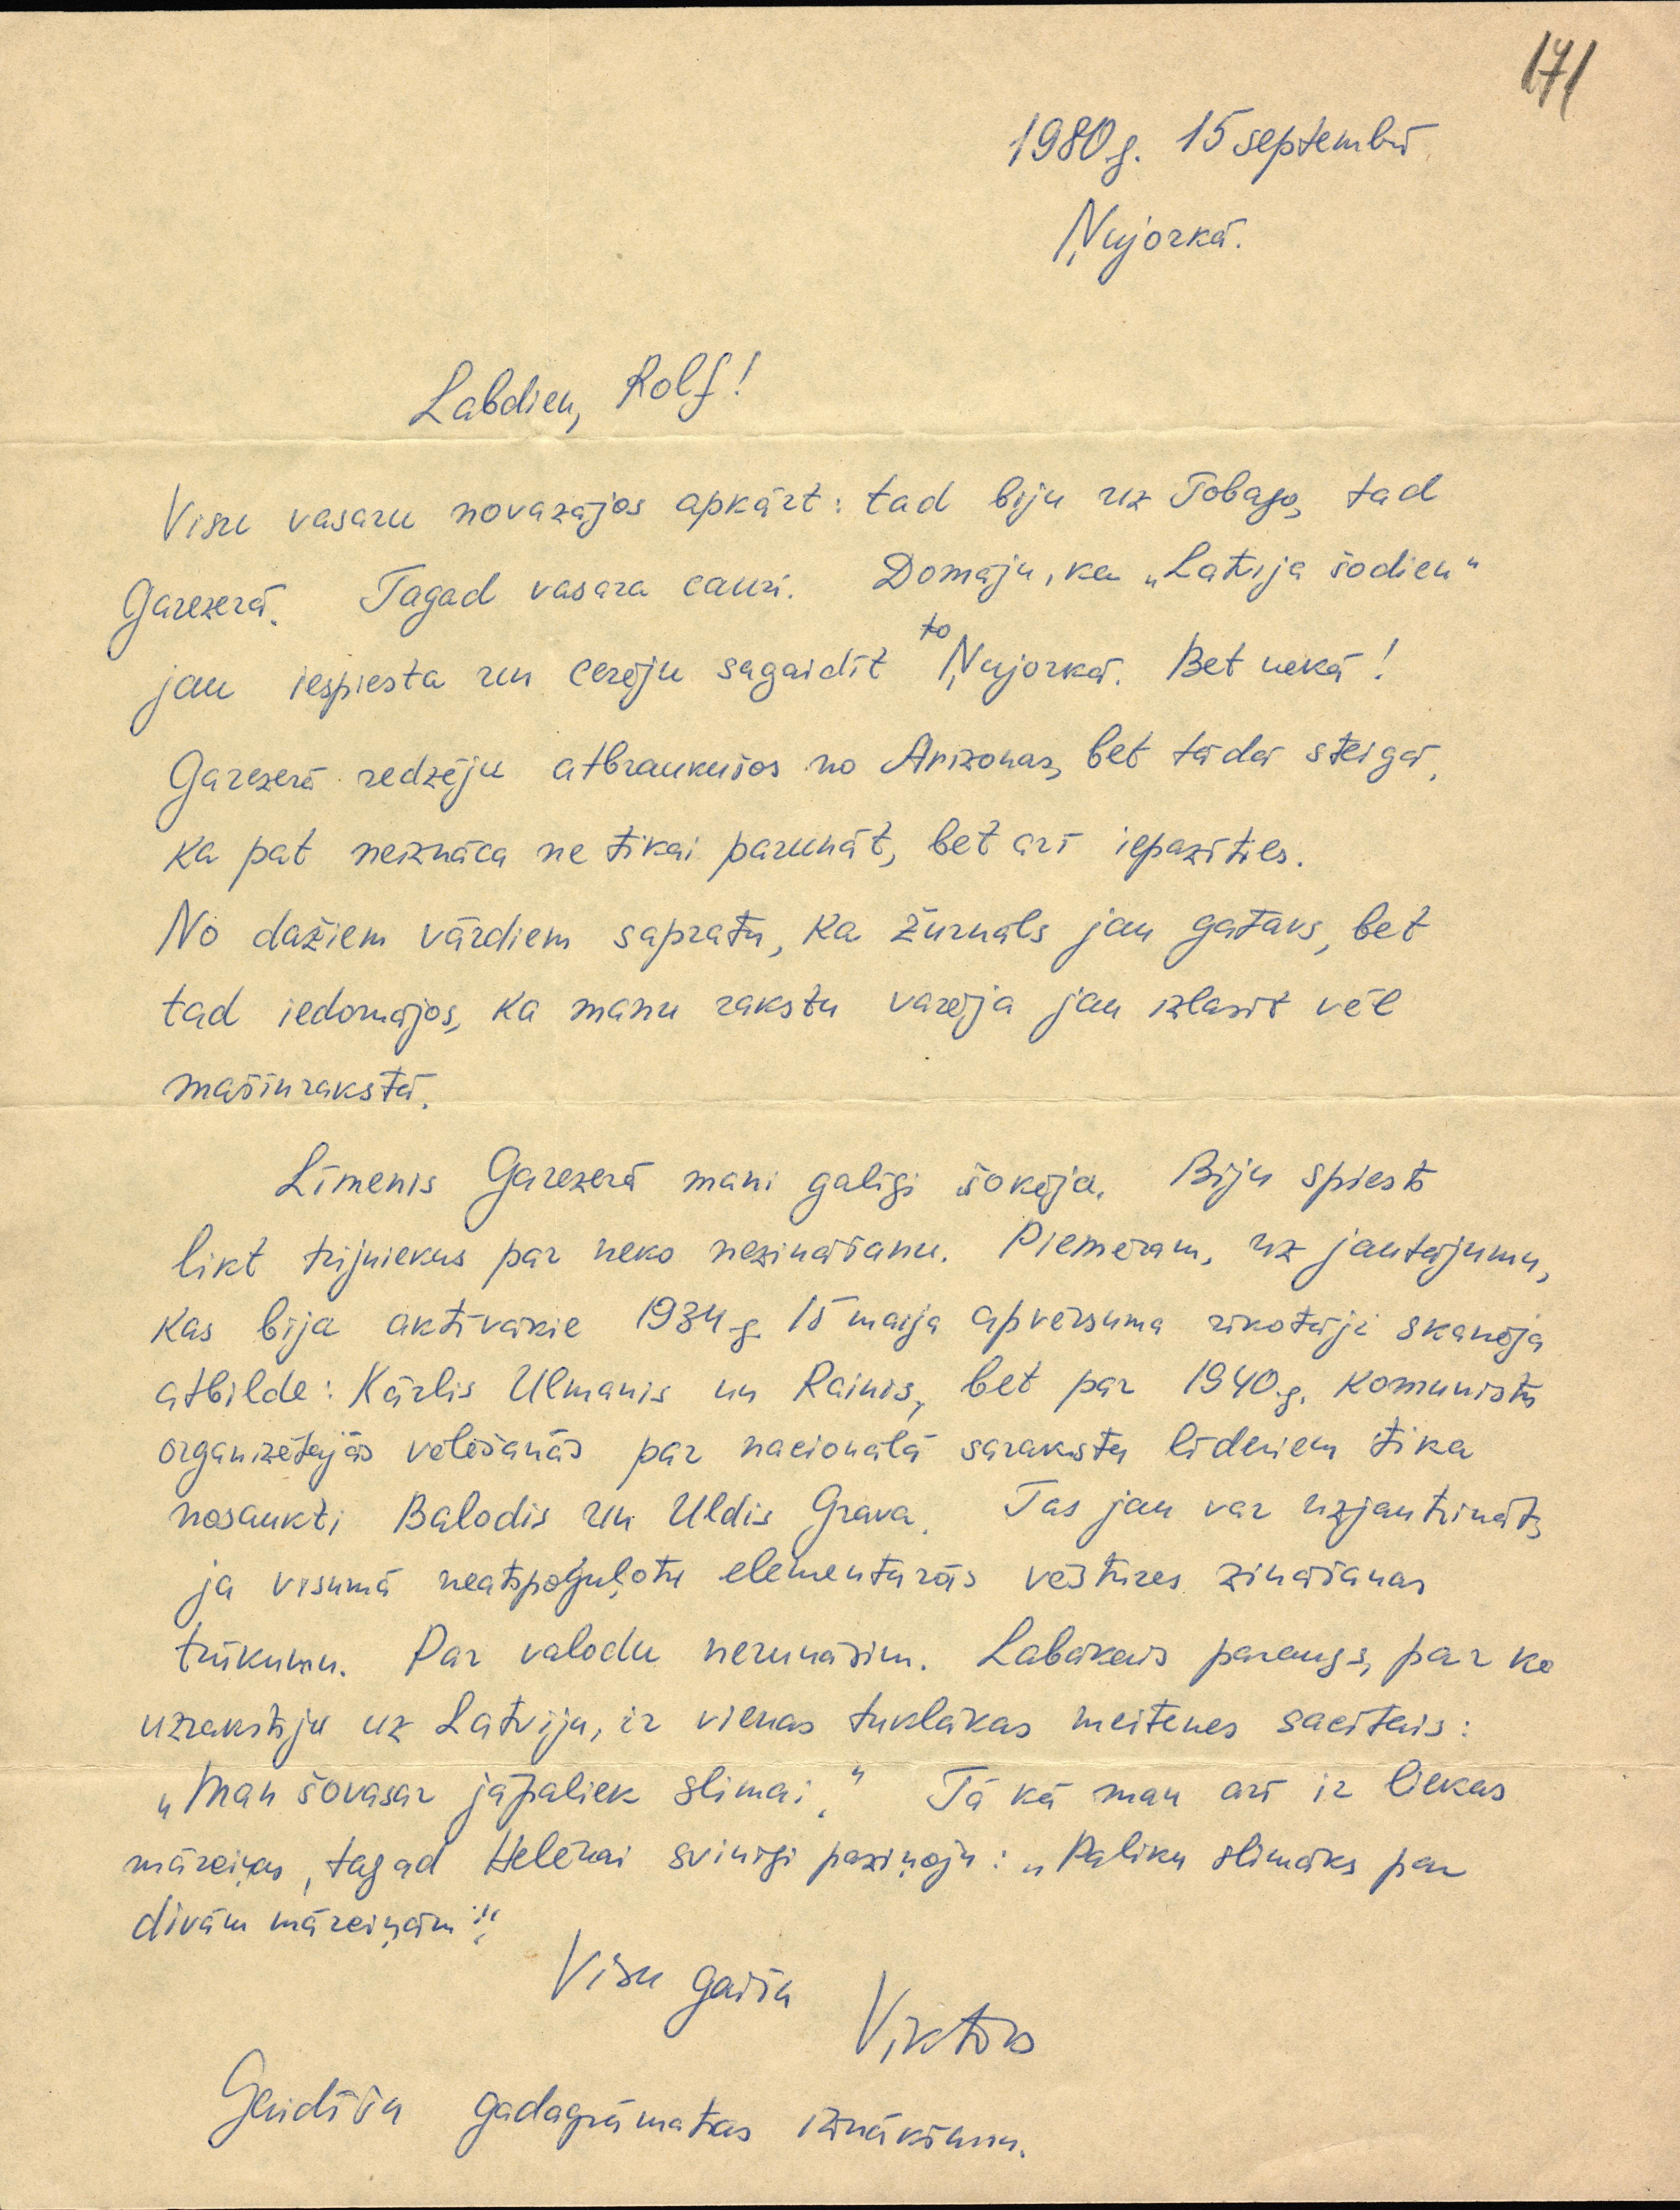 171
1980g. 15 septembrī
Ņujorkā.
Labdien, Rolf!
Visu vasaru novazājos apkārt: tad biju uz Tobago, tad
Garezerā. Tagad vasara cauri. Domāju, ka „Latvija šodien"
jau iespiesta un cerēju sagaidīt to Ņujorkā. Bet nekā!
Garezerā redzēju atbraukušos no Arizonas, bet tādā steigā,
ka pat neiznāca ne tikai parunāt, bet arī iepazīties.
No dažiem vārdiem sapratu, ka žurnāls jau gatavs, bet
tad iedomājos, ka manu rakstu varēja jau izlasīt vēl
mašīnrakstā.
Līmenis Garezerā mani galīgi šokēja. Biju spiests
likt trijniekus par neko nezināšanu. Piemēram, uz jautājumu,
kas bija aktīvākie 1934g. 15 maija apvērsuma rīkotāji skanēja
atbilde: Kārlis Ulmanis un Rainis, bet par 1940.g. komunistu
organizētajās vēlēšanās par nacionālā saraksta līderiem tika
nosaukti Balodis un Uldis Grava. Tas jau var uzjautrināt,
ja visumā neatspoguļotu elementārās vēstures zināšanas
trūkumu. Par valodu nerunāsim. Labākais paraugs, par ko
uzrakstīju uz Latviju, ir vienas tuklākas meitenes sacītais:
„Man šovasar jāpaliek slimai." Tā kā man arī ir liekas
mārciņas, tagad Helēnai svinīgi paziņoju: „Paliku slimāks par
divām mārciņām!"
Visu gaišu
Viktors
Gaidīšu gadagrāmatas iznākšanu.